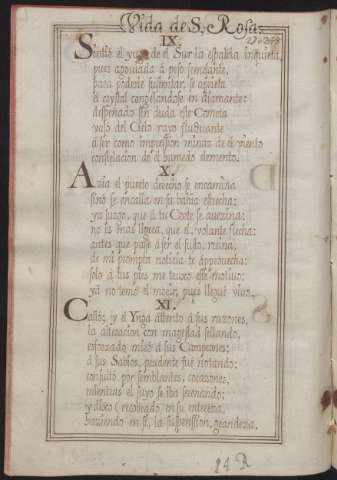 Vida de S. Rosa.
IX.
Sintió el yugo de el Sur la espalda inquieta,
pues agoviada á peso semejante,
para poderle sustentar, se aprieta
el crystal congelandose en diamante:
despeñado sin duda este Cometa
vasó del Cielo rayo fluctuante
á ser como impression mina de el viento
constelacion de el humedo elemento.
X.
Azia el puerto derecho se encamina
sino se encalla en su bahia estrecha:
ya juzgo, que á tu Corte se avezina;
no es mas ligera, que el, volante flecha:
antes que passe á ser el susto, ruina,
de mi prompta noticia te approvecha:
solo á tus pies me truxo este motivo:
ya no temo el morir, pues llegué vivo.
XI.
Calló; y el Ynga attento á sus razones,
la alteracion con magestad sellando,
esforzado miró á sus Campeones:
á sus Sabios, prudente fué notando:
consultó por semblantes, corazones,
mientras el suyo se iba serenando:
y dixo (recobrado en su entereza,
haziendo en sí, la suspenssion, grandeza.